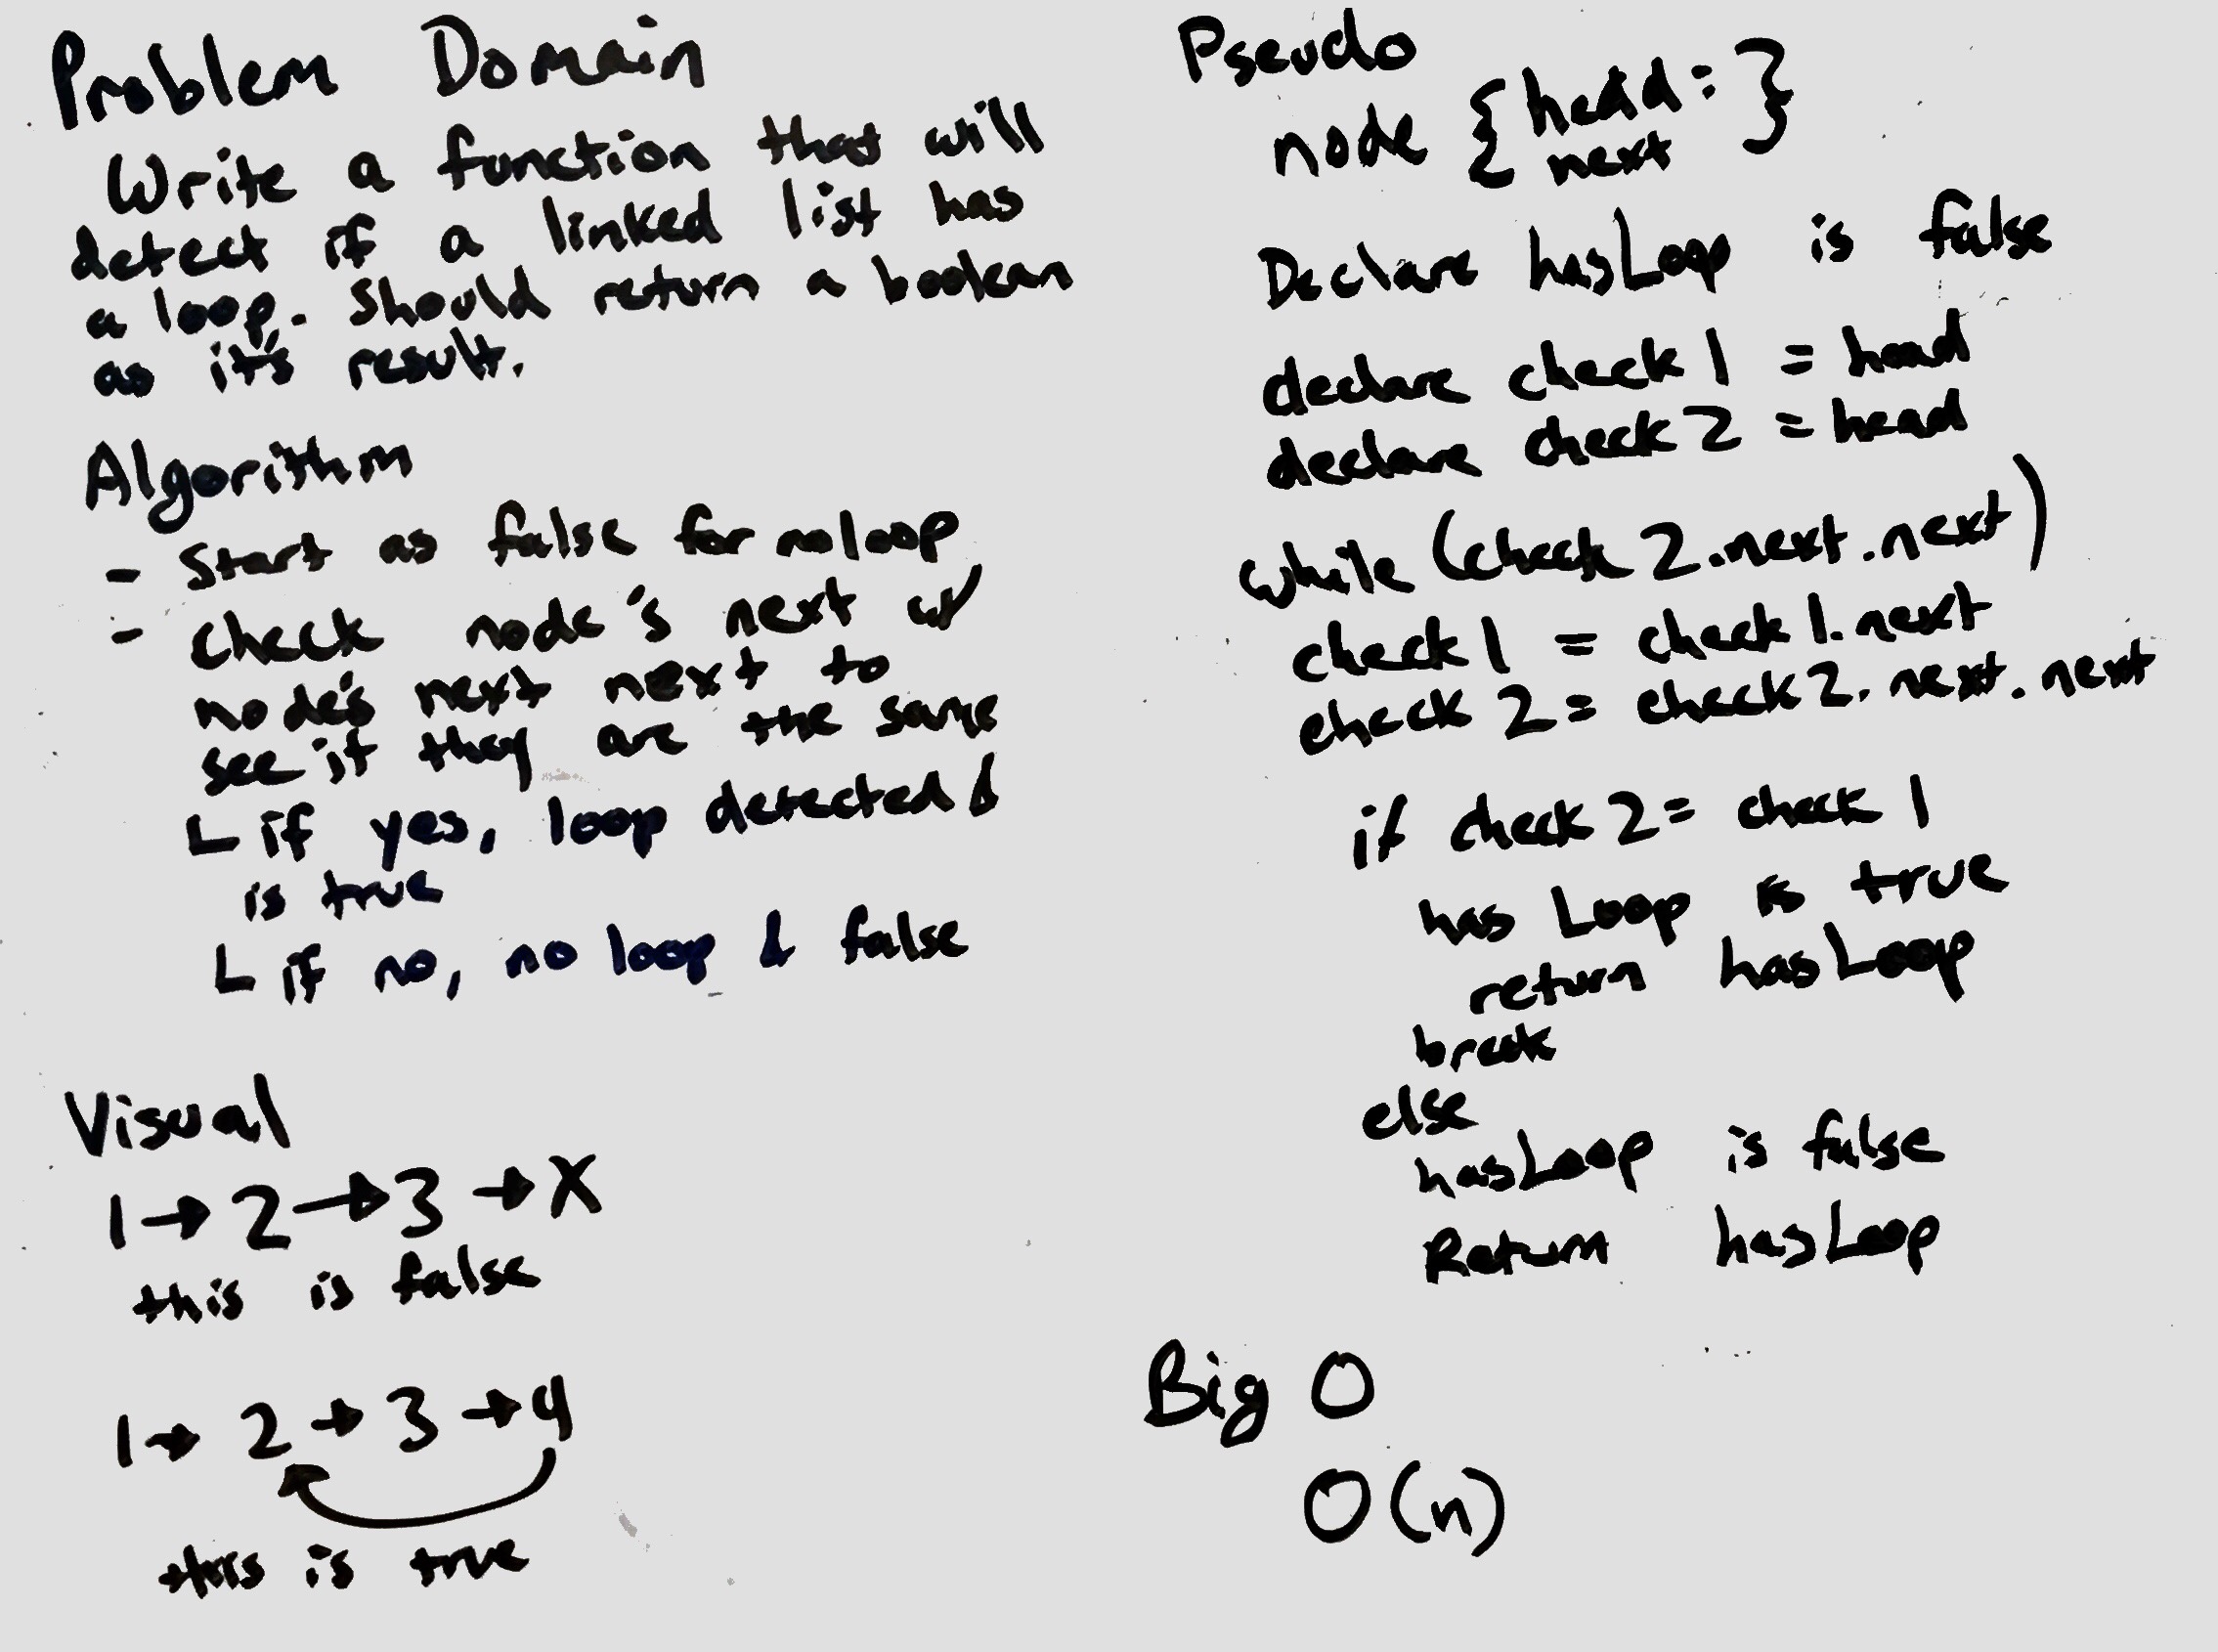 Problem Domain
Write a function that will
detect if a linked list has
a loop. Should return a boolean
as it's result.
Algorithm
- Start as false for no loop
- check node's next w/
node's next next to
see if they are the same
L if yes, loop detected &
is true
L if no, no loop & false
Visual
1 → 2 → 3 → X
this is false
1 → 2 → 3 → 4
this is true
Pseudo
node { head: }
next
Declare hasLoop is false
declare check1 = head
declare check2 = head
while (check2.next.next)
check1 = check1.next
check2 = check2.next.next
if check2 = check1
has Loop is true
return hasLoop
break
else
hasLoop is false
Return hasLoop
Big O
O(n)